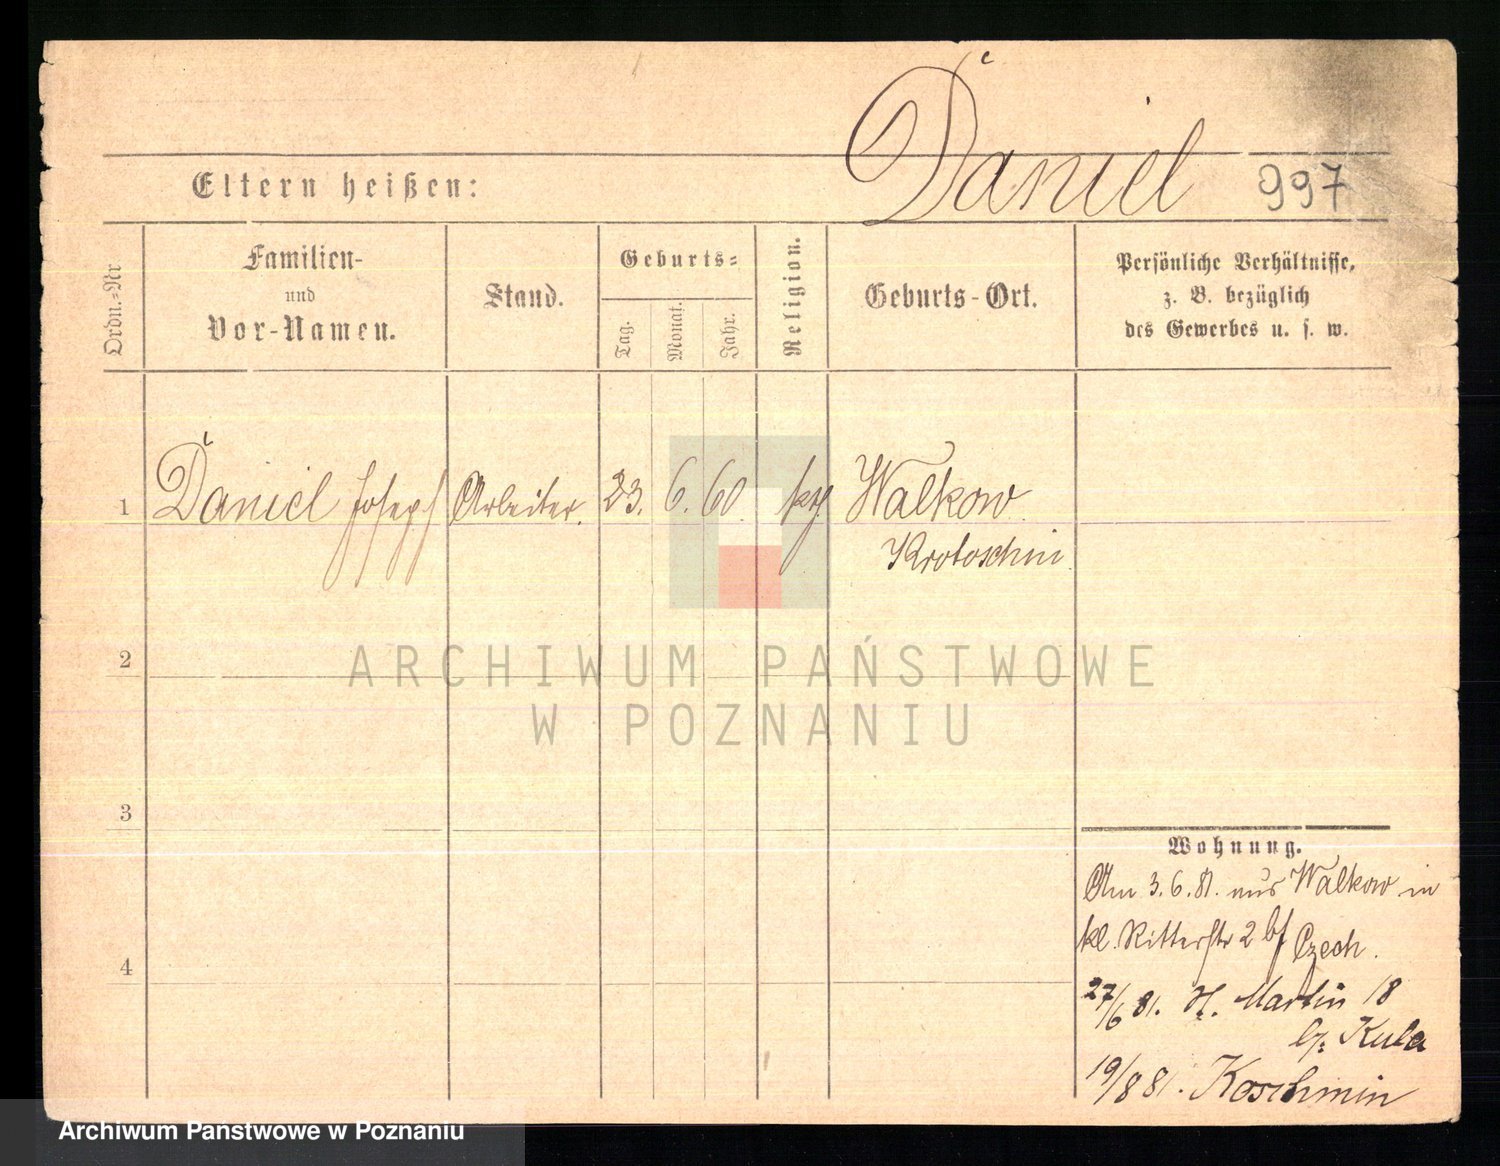 Daniel 997
Eltern heißen:
Ordn.-Nr
Familien-
und
Vor-Namen.
Stand.
Geburts-
Tag.
Monat.
Jahr.
Religion.
Geburts-Ort.
Persönliche Verhältnisse,
z. B. bezüglich
des Gewerbes u. s. w.
1 Daniel Joseph Arbeiter. 23. 6. 60. kth Walkow
Krotoschin
2
3
4
Wohnung.
Am 3.6.81. aus Walkow in
kl. Ritterstr 2 bf Czech.
27/6 81. St. Martin 18
b/: Kula
19/8 81. Koschmin
ARCHIWUM PAŃSTWOWE
W POZNANIU
Archiwum Państwowe w Poznaniu